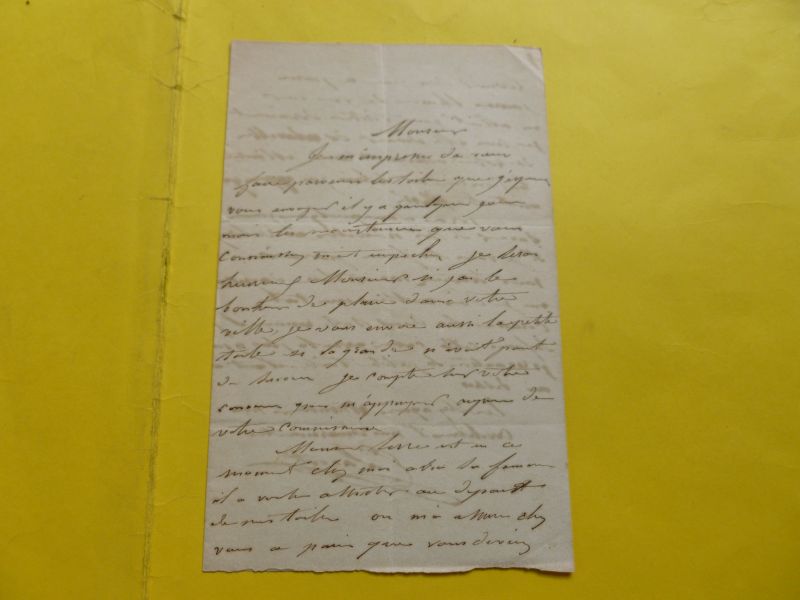 Monsieur
Je m'empresse de vous
faire parvenir les toiles que
vous envoyer il y a quelques jours
mais les circonstances que vous
connaissez m'ont empecher je serai
heureux Monsieur si j'ai le
bonheur de plaire dans votre
ville, je vous envoie aussi la petite
toile si la grande n'avait point
de succes je compte sur votre
concours pour m'appuyer aupres de
votre Commission
Monsieur est en ce
moment chez moi avec sa femme
il a voulu assister au depart
de mes toiles on m'a assure chez
vous a paris que vous deviez